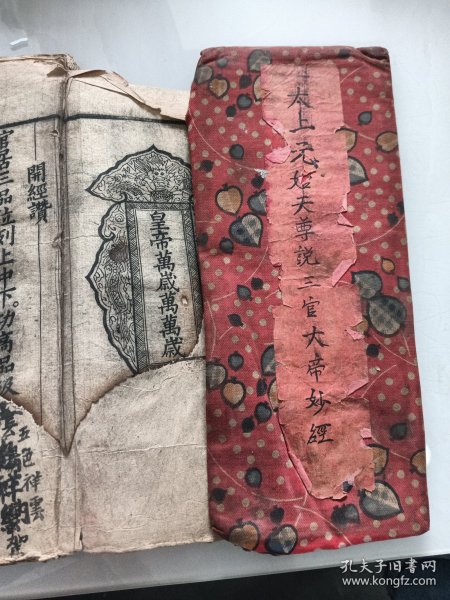 太上元始天尊説三官大帝妙經
皇帝萬歲萬萬歲
開經讚
官括三品竝列上中下。功高品
五色祥雲
孔夫子旧书网
www.kongfz.com